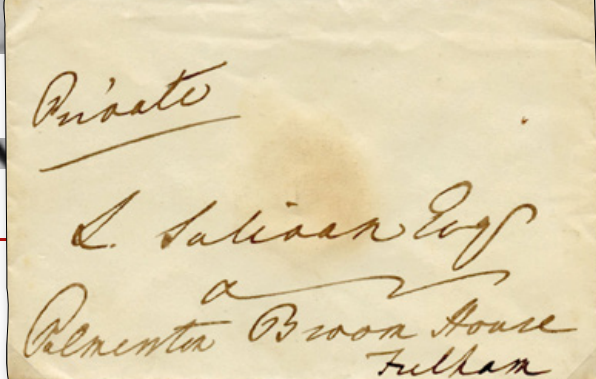 Private
L. Sulivan Esqr
Palmerston Broom House
Fulham